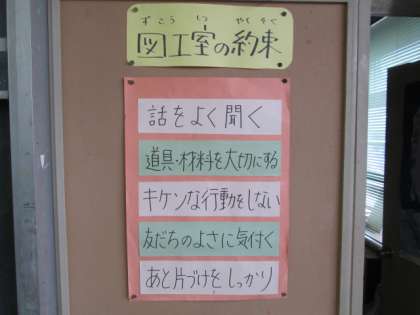 ずこうしつ やくそく
図工室の約束
話をよく聞く
道具・材料を大切にする
キケンな行動をしない
友だちのよさに気付く
あと片づけをしっかり